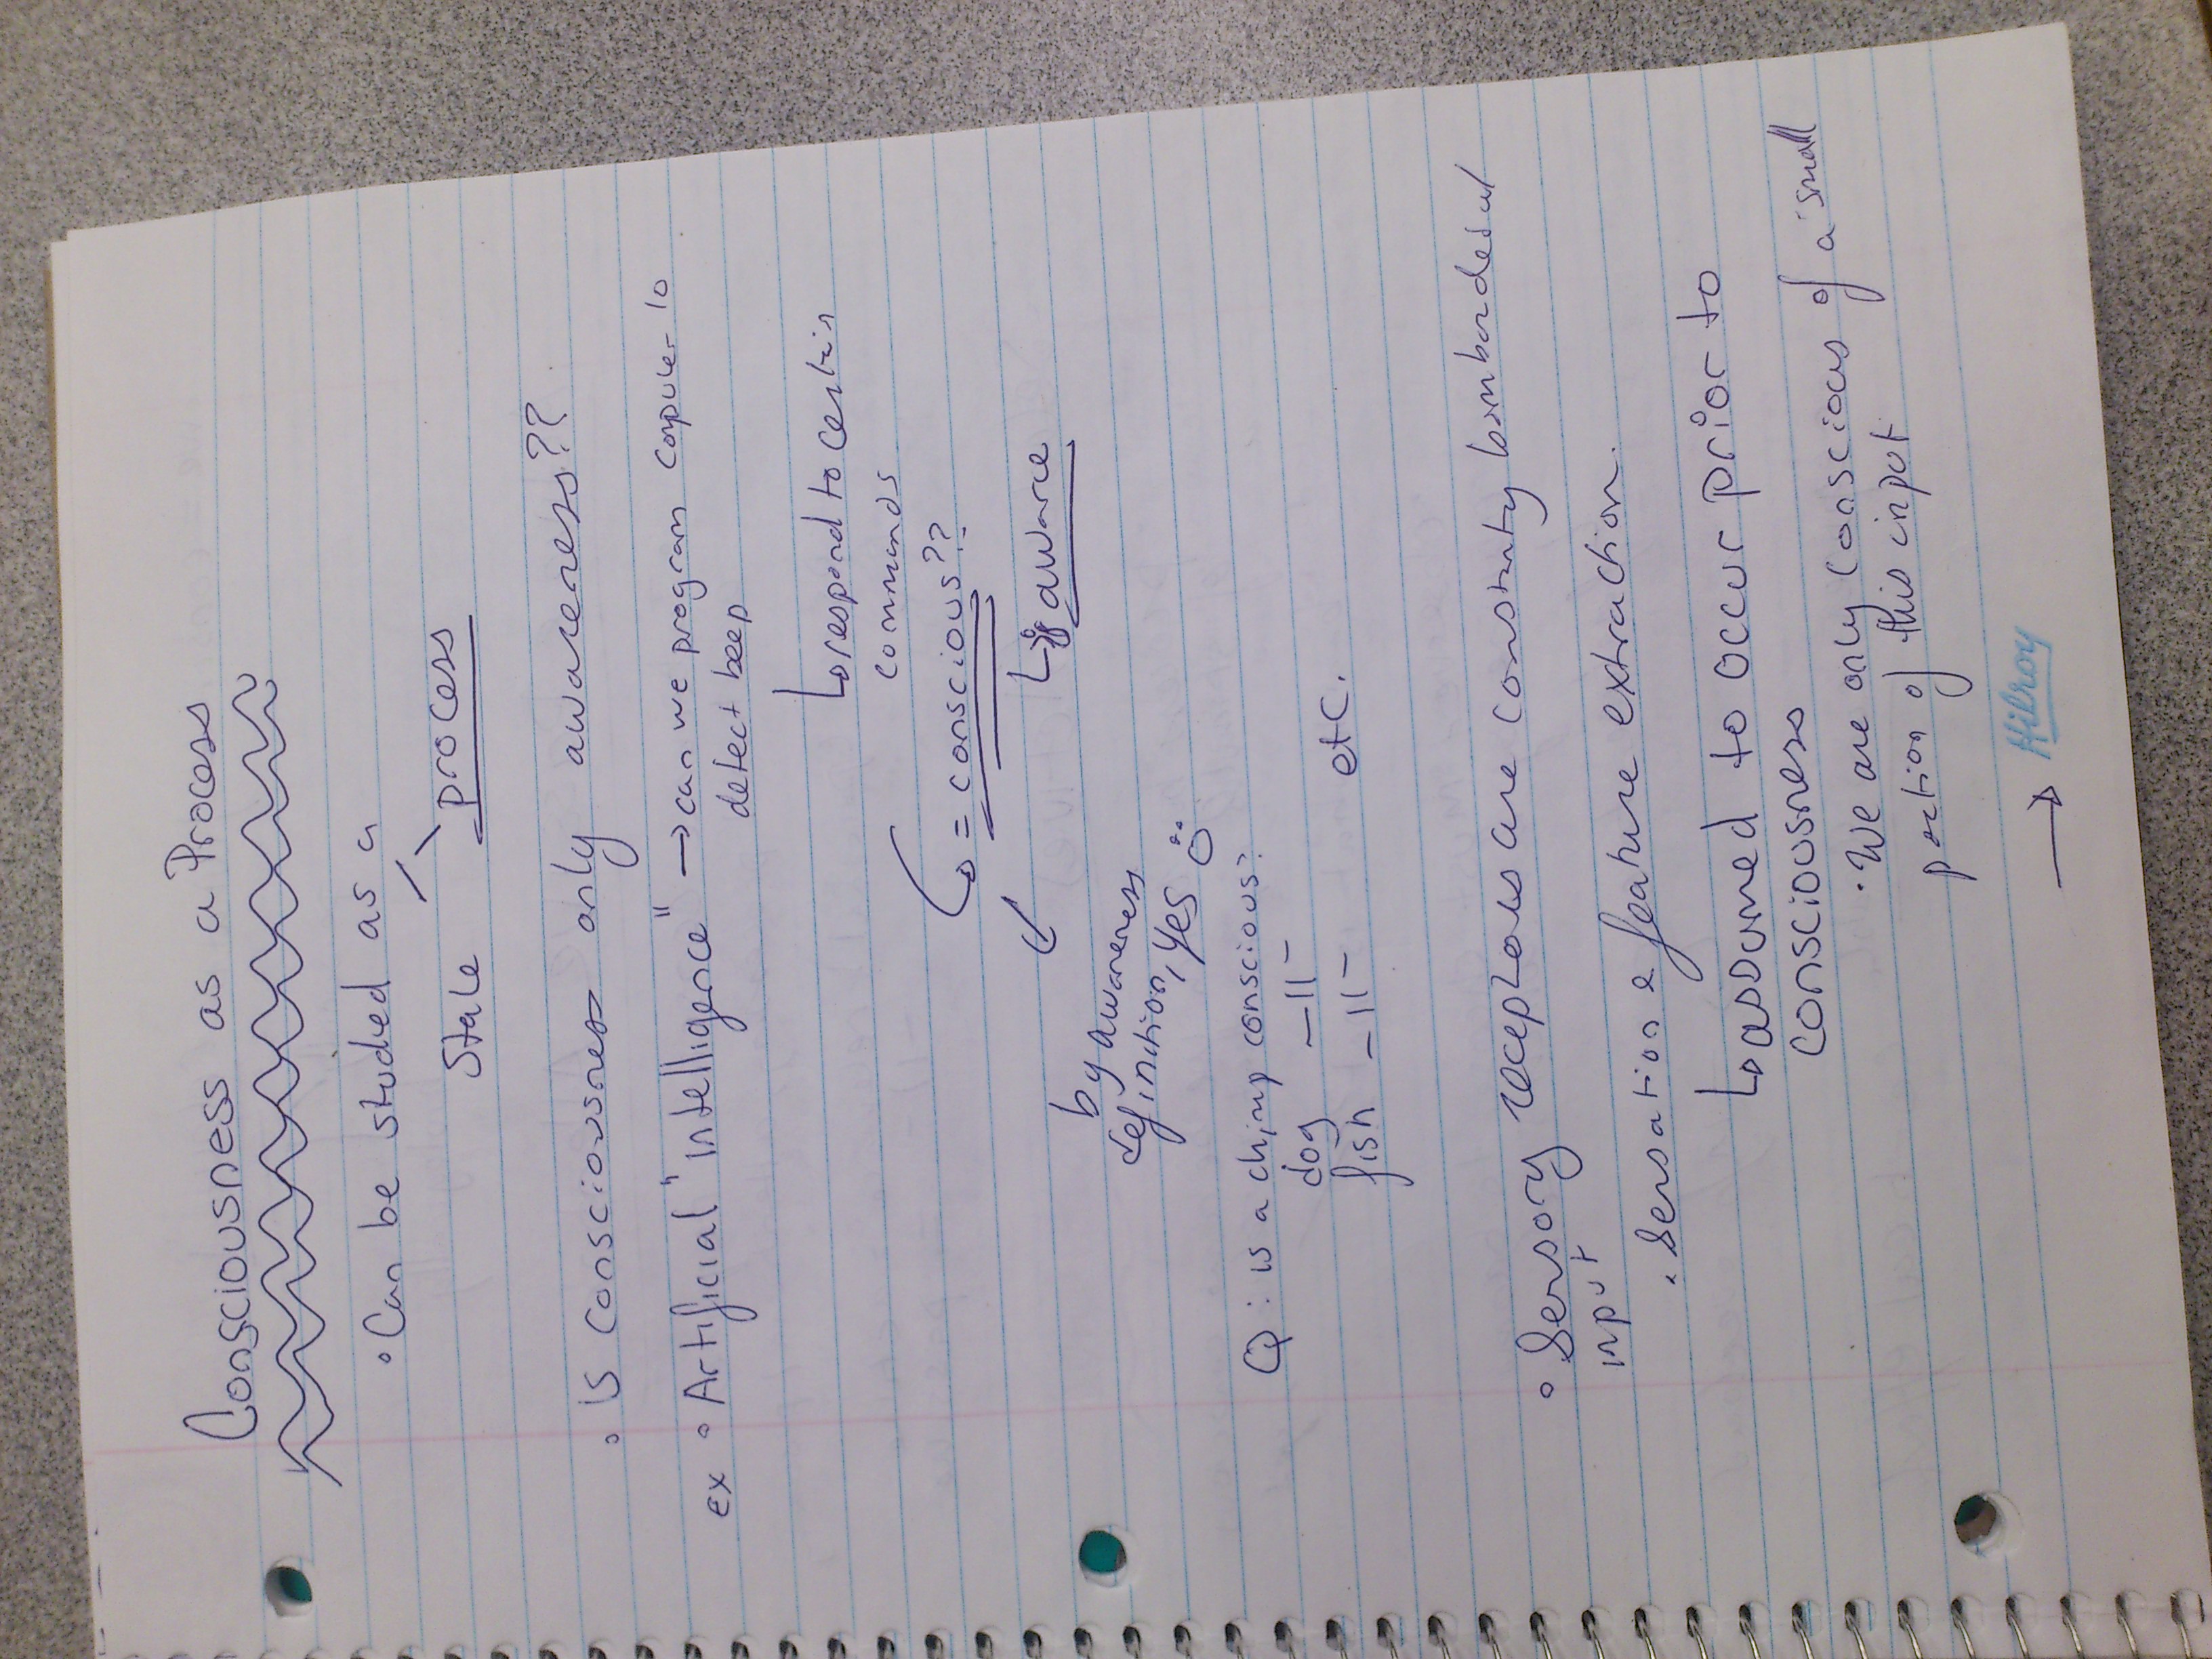 Consciousness as a Process
• Can be studied as a
State process
• is consciousness only awareness??
ex • Artificial "intelligence" → can we program computer to
detect beep
↳ respond to certain
commands
↳ = conscious??
↳ aware
by awareness
definition, yes
Q: is a chimp conscious?
dog -11-
fish -11- etc.
• Sensory receptors are constantly bombarded w/
input
• Sensation & feature extraction.
↳ assumed to occur prior to
consciousness
• We are only conscious of a small
portion of this input
→
Hilroy